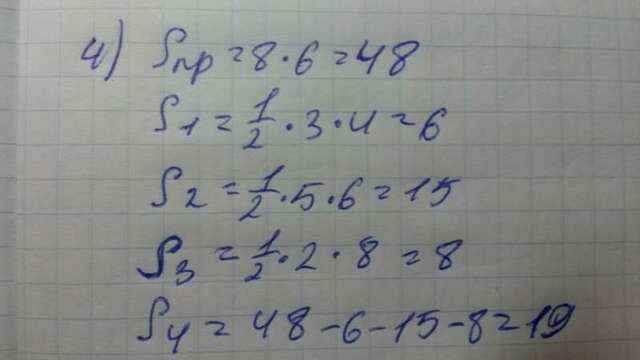 4) Sпр = 8 · 6 = 48
S1 = 1/2 · 3 · 4 = 6
S2 = 1/2 · 5 · 6 = 15
S3 = 1/2 · 2 · 8 = 8
S4 = 48 - 6 - 15 - 8 = 19